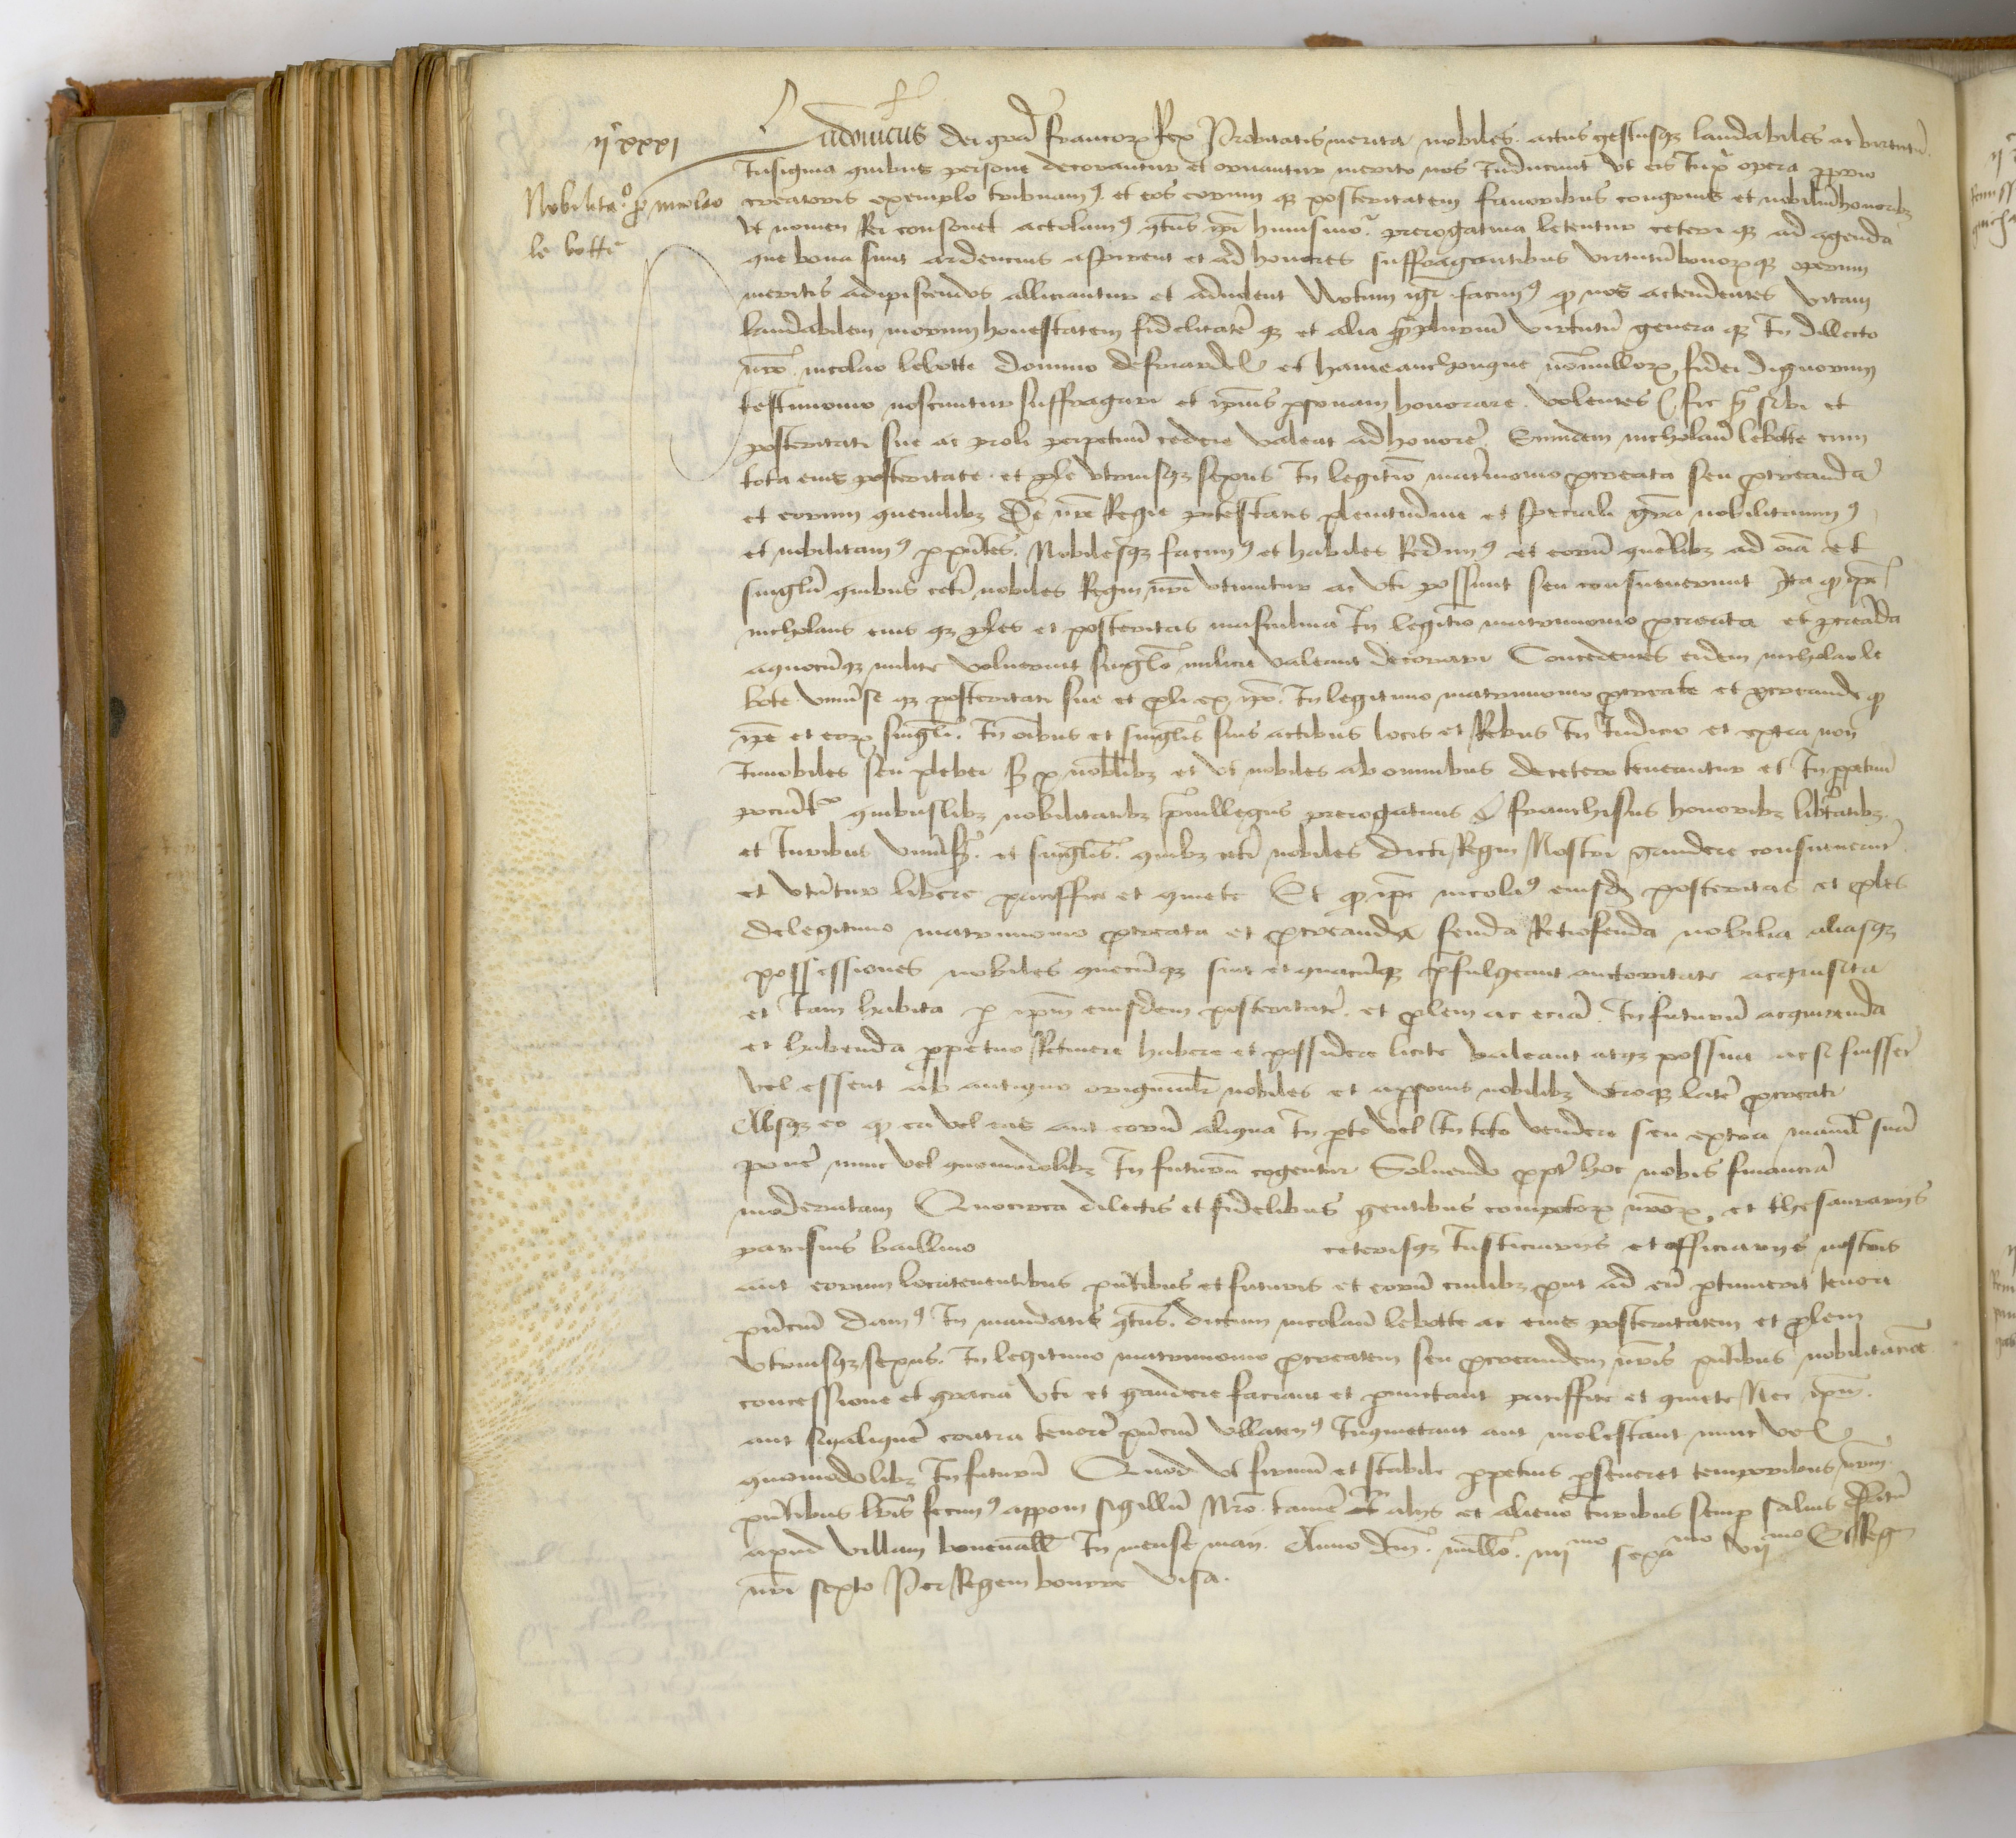 IIc XXXI
Nobilitao pro nicolao
le botte
Ludovicus dei gra francorum Rex Probitatis merita nobiles actus gestusque laudabiles ac virtutum
Insignia quibus persone decorantur et ornantur merito nos Inducunt Ut eis Juxta opera proprio
creatoris exemplo tribuamus et eos eorum que posteritatem favoribus congruis et nobilium honoribus
Ut nomen Rei consonet actolamus quatenus ipsi huiusmoi prerogativa letentur ceteri que ad agenda
que bona sunt ardencius aspirent et ad honores suffragantibus virtutum bonorum que operum
meritis adipiscendos alliciantur et advolent Notum igitur facimus quod nos actendentes vitam
laudabilem morum honestatem fidelitatem que et alia quamplurium virtutum genera que In dillecto
nro nicolao lebotte domino de et nonnullorum fidei dignorum
testimonio noscuntur suffragari et ipsius personam honorare volentes sic quod sibi et
posteritati sue ac proli perpetuum cedere valeat ad honorem Eumdem nicholaum lebotte cum
tota eius posteritate et prole utriusque sexus In legitimo matrimonio procreata seu procreanda
et eorum quemlibet De nre Regie potestatis plenitudine et speciali gra nobilitavimus
et nobilitamus per presentes Nobilesque facimus et habiles Reddimus et eorum quemlibet ad oia et
singula quibus ceteri nobiles Regni nri utuntur ac uti possunt seu consueverunt Ita quod ipse
nicholaus eius que proles et posteritas masculina In legitimo matrimonio procreata et procreanda
a quocunque milite voluerint singulo milicie valeant decorari Concedentes eidem nicholao le
bote universe que posteritati sue et proli ex ipso In legitimo matrimonio procreate et procreande quod
ipse et eorum singuli In oibus et singulis suis actibus locis et Rebus In Judicio et extra non
Innobiles seu plebei sed pro nobilibus et ut nobiles ab omnibus decetero teneantur et In perpetuum
pociantur quibuslibet nobilitatibus privillegiis prerogativis franchisiis honoribus libertatibus
et Juribus universis et singulis quibus ceteri nobiles dicti Regni Nostri gaudere consueverunt
et utuntur libere paciffice et quiete Et quod ipse nicolaus eiusdem posteritas et proles
de legitimo matrimonio procreata et procreanda feuda Retrofeuda nobilia aliasque
possessiones nobiles quecunque sint et quacunque prefulgeant auctoritate acquisita
et Jam habita per ipsum eiusdem posteritatem et prolem ac eciam In futurum acquirenda
et habenda perpetuo Retinere habere et possidere licite valeant atque possint ac si fuissent
vel essent ab antiquo originaliter nobiles et a personis nobilibus utroque latere procreati
Absque eo quod ea vel eas aut eorum aliqua In parte vel In toto vendere seu extra manum suam
ponere nunc vel quomodolibet In futurum cogentur Solvendo propter hoc nobis financiam
moderatam Quocirca dilectis et fidelibus gentibus compotorum nrorum et thesaurariis
parisius baillivo ceterisque Justiciariis et officiariis nostris
aut eorum locatenentibus presentibus et futuris et eorum cuilibet prout ad eum pertinuerit tenore
presencium damus In mandatis quatenus dictum nicolaum lebotte ac eius posteritatem et prolem
utriusque sexus In legitimo matrimonio procreatem seu procreandem nris presentibus nobilitacione
concessione et gracia uti et gaudere faciant et permittant paciffice et quiete Nec ipsum
aut aliquem contra tenorem presencium ullatenus Inquietant aut molestant nunc vel
quomodolibet In futurum Quod ut firmum et stabile perpetuis perseveret temporibus nrum
presentibus lris fecimus apponi sigillum Nro tamen In aliis et alieno Juribus semper salvis Datum
apud villam In mense maii Anno dni millo iiiimo sexamo viimo Et Regni
nri sexto Per Regem bourre Visa